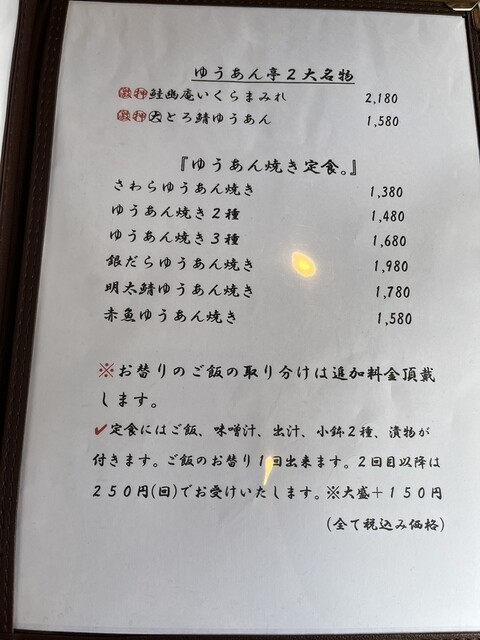 ゆうあん亭２大名物
激押鮭幽庵いくらまみれ 2,180
激押大とろ鯖ゆうあん 1,580
『ゆうあん焼き定食。』
さわらゆうあん焼き 1,380
ゆうあん焼き２種 1,480
ゆうあん焼き３種 1,680
銀だらゆうあん焼き 1,980
明太鯖ゆうあん焼き 1,780
赤魚ゆうあん焼き 1,580
※お替りのご飯の取り分けは追加料金頂戴
します。
✔定食にはご飯、味噌汁、出汁、小鉢２種、漬物が
付きます。ご飯のお替り１回出来ます。２回目以降は
２５０円(回)でお受けいたします。※大盛＋１５０円
(全て税込み価格)